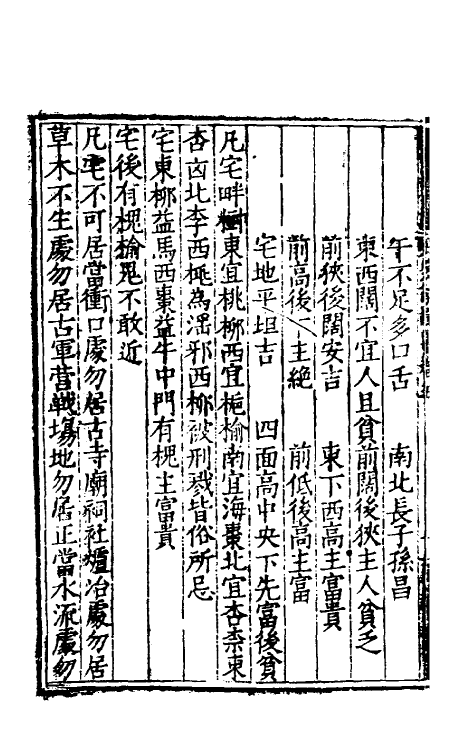 午不足多口舌　　南北長子孫昌
東西闊不宜人且貧前闊後狹主人貧乏
前狹後闊安吉　　東下西高主富貴
前高後下主絶　　前低後高主富
宅地平坦吉　　四面高中央下先富後貧
凡宅畔樹東宜桃柳西宜梔榆南宜海棗北宜杏柰東
杏凶北李西桃為滛邪西柳被刑戮皆俗所忌
宅東柳益馬西棗益牛中門有槐主富貴
宅後有槐榆鬼不敢近
凡宅不可居當衝口處勿居古寺廟祠社爐冶處勿居
草木不生處勿居古軍營戰塲地勿居正當水流處勿